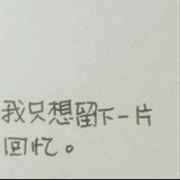 我只想留下一片
回忆。